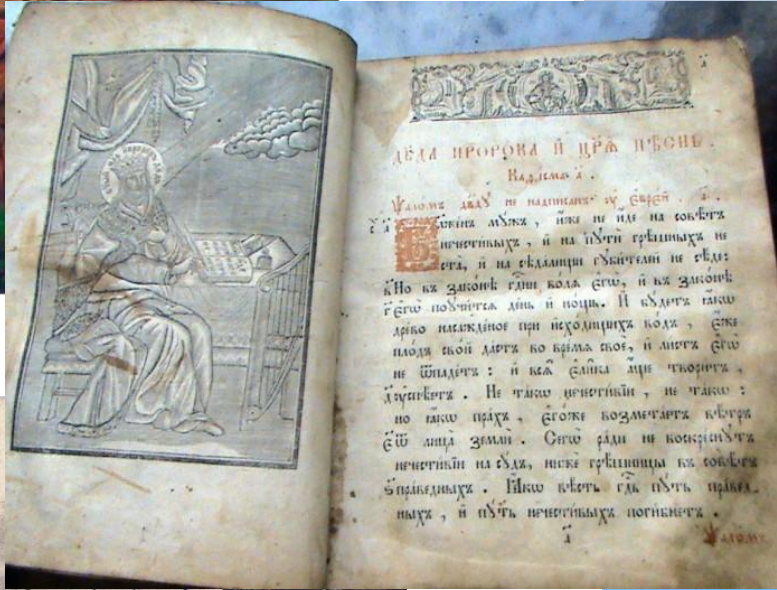 а҃
ДВ҃ДА ПРОРОКА И҆ ЦР҃Ѧ ПѢСНЬ.
Каѳі́сма а҃.
Ѱало́мъ дв҃дꙋ не надпи́санъ ᲂу҆ є҆врє́й. а҃.
Бл҃же́нъ мꙋ́жъ, и҆́же не и҆́де на совѣ́тъ
нечести́выхъ, и҆ на пꙋти́ грѣ́шныхъ не
ста̀, и҆ на сѣда́лищи гꙋби́телей не сѣ́де:
в҃ Но въ зако́нѣ гдⷭ҇ни во́лѧ є҆гѡ̀, и҆ въ зако́нѣ
г҃ є҆гѡ̀ поꙋчи́тсѧ де́нь и҆ но́щь. И҆ бꙋ́детъ ꙗ҆́кѡ
дре́во насажде́ное при и҆схо́дищихъ во́дъ, є҆́же
пло́дъ сво́й да́стъ во вре́мѧ своѐ, и҆ ли́стъ є҆гѡ̀
не ѿпаде́тъ: и҆ всѧ̑ є҆ли̑ка а҆́ще твори́тъ,
д҃ ᲂу҆спѣ́етъ. Не та́кѡ нечести́вїи, не та́кѡ:
но ꙗ҆́кѡ пра́хъ, є҆го́же возмета́етъ вѣ́тръ
є҃ ѿ лица̀ землѝ. Сегѡ̀ ра́ди не воскре́снꙋтъ
нечести́вїи на сꙋ́дъ, нижѐ грѣ́шницы въ совѣ́тъ
ѕ҃ пра́ведныхъ. Ꙗ҆́кѡ вѣ́сть гдⷭ҇ь пꙋ́ть пра́вед
ныхъ, и҆ пꙋ́ть нечести́выхъ поги́бнетъ.
а҃
Ѱало́мъ